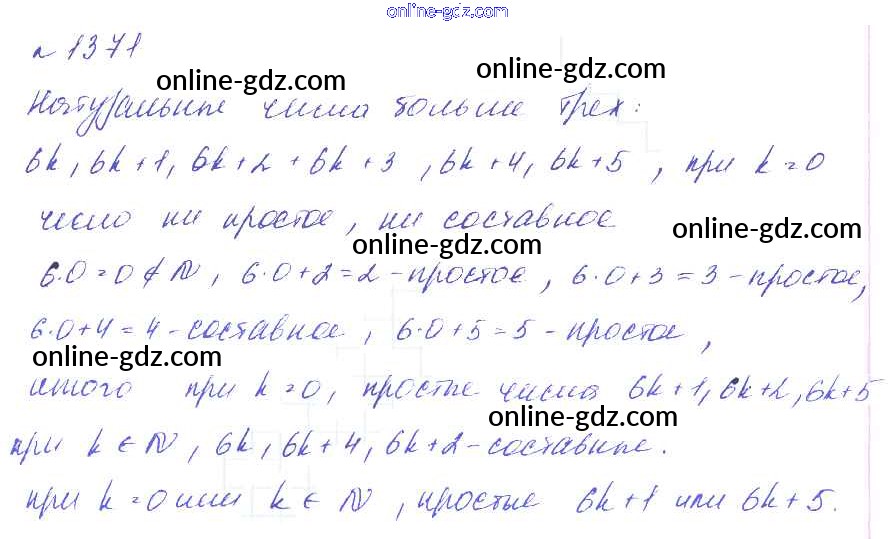 online-gdz.com
n 1371
online-gdz.com online-gdz.com
Натуральные числа больше трех:
6k, 6k+1, 6k+2 + 6k+3, 6k+4, 6k+5, при k=0
число ни простое, ни составное
online-gdz.com online-gdz.com
6·0=0∉N, 6·0+2=2-простое, 6·0+3=3-простое,
6·0+4=4-составное, 6·0+5=5-простое,
online-gdz.com
итого при k=0, простые числа 6k+1, 6k+2, 6k+5
online-gdz.com
при k∈N, 6k, 6k+4, 6k+2-составные.
при k=0 или k∈N, простые 6k+1 или 6k+5.
online-gdz.com